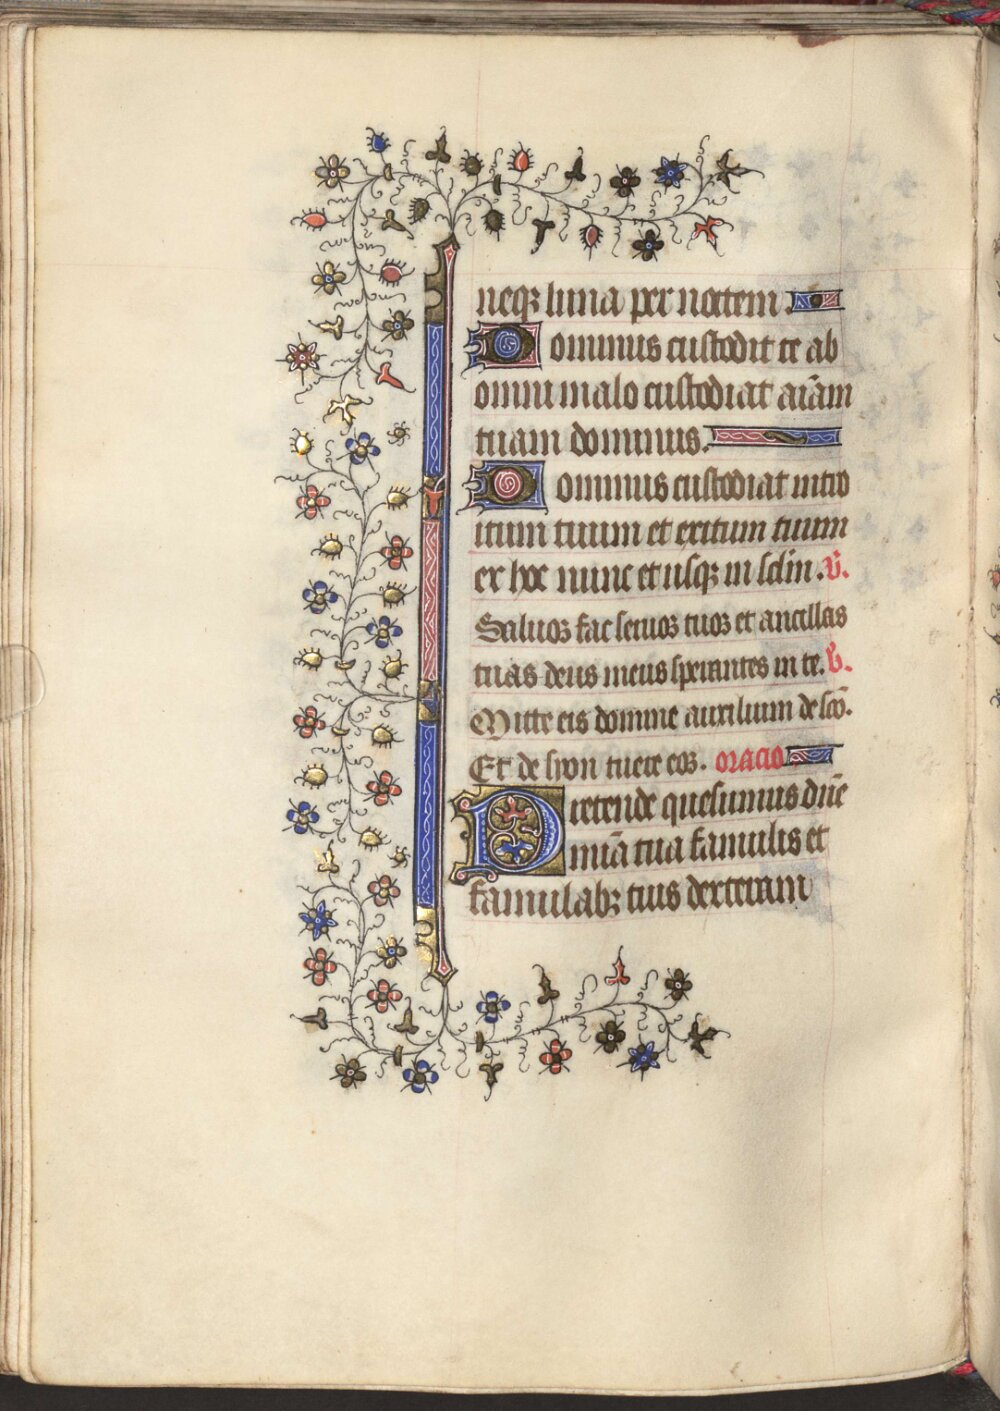 neqꝫ luna per noctem.
Dominus custodit te ab
omni malo custodiat aīam
tuam dominus.
Dominus custodiat intro
itum tuum et exitum tuum
ex hoc nunc et usqꝫ in sclm̄. v̄.
Saluos fac seruos tuos et ancillas
tuas deus meus sperantes in te. v̄.
Mitte eis domine auxilium de scō.
Et de syon tuere eos. oracio
Pretende quesumus dn̄e
miā tua famulis et
famulabꝫ tuis dexteram